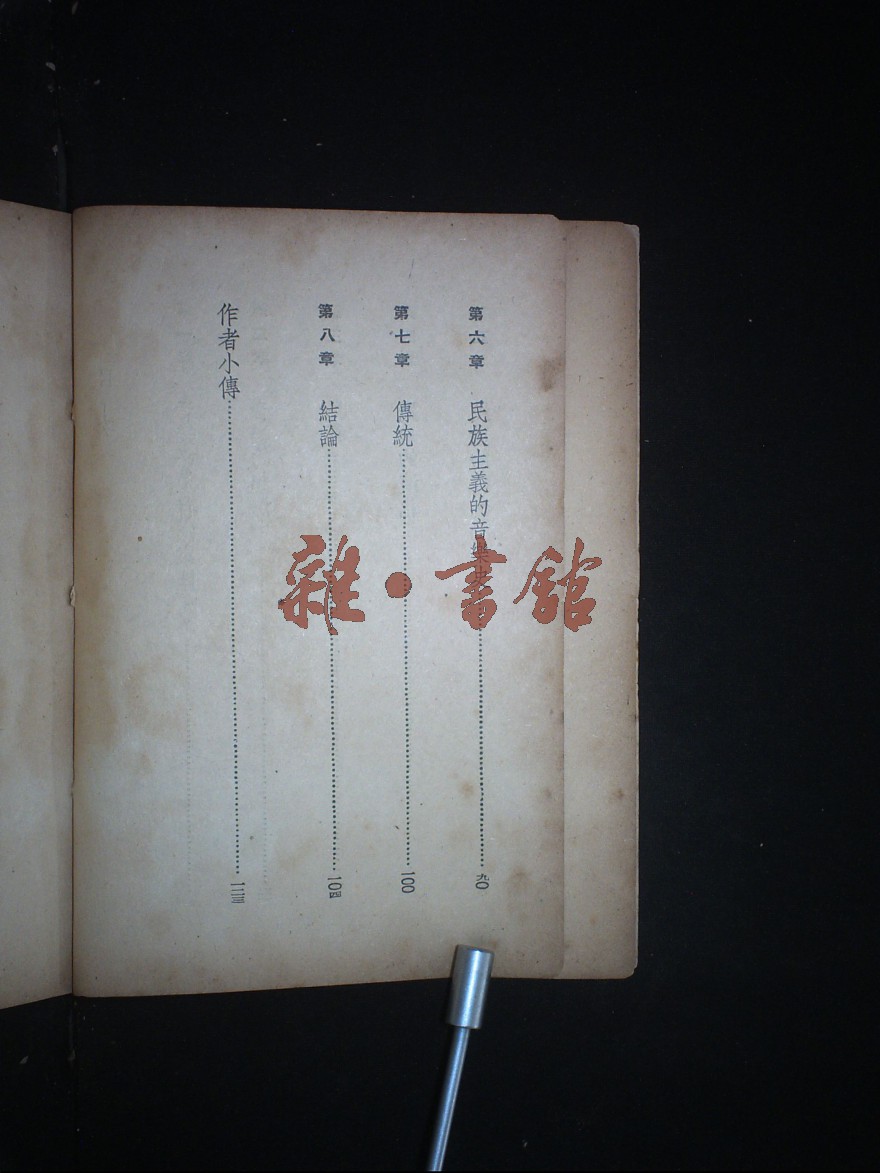 第六章 民族主義的音樂史………九〇
第七章 傳統………一〇〇
第八章 結論………一〇四
作者小傳………一二三
雜·書館